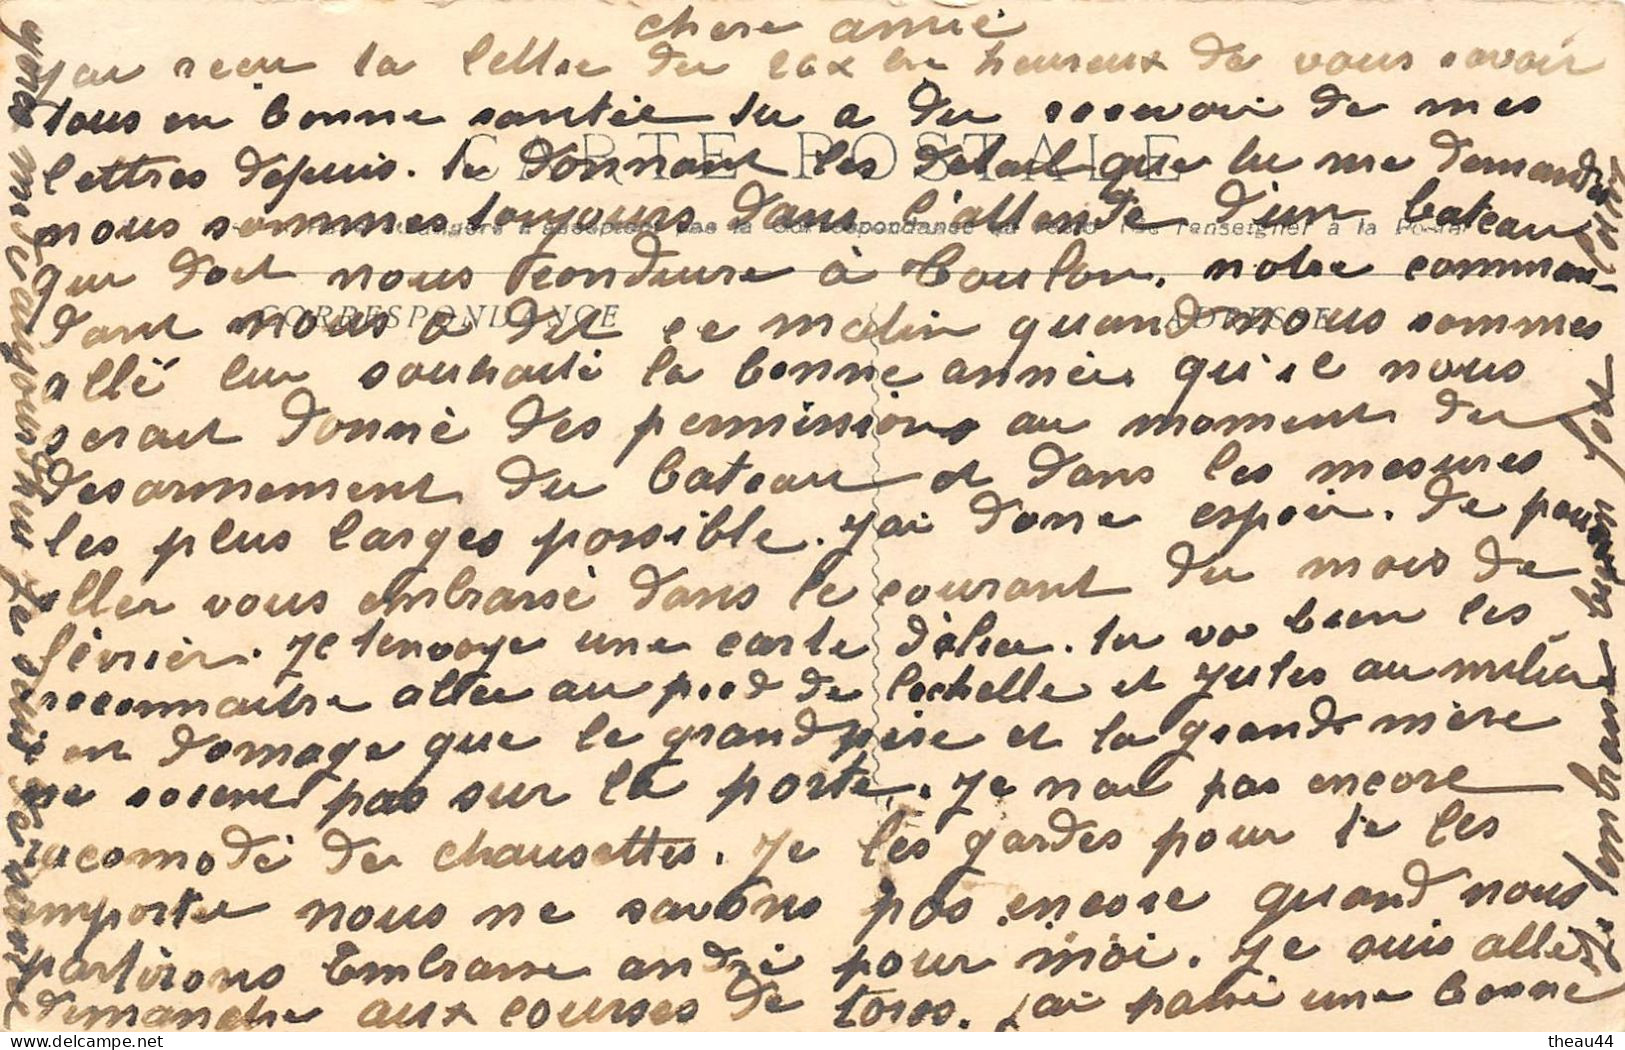 chere amie
jai recu ta lettre du heureux de vous savoir
tous en bonne santée tu a du recevoir de mes
lettres depuis. te donnant les detail que tu me demandes
nous sommes toujours dans l'attende d'un bateau
qui doit nous condeure à Toulon. notre comman-
dant nous a dit ce matin quand nous sommes
allé lui souhaité la bonne année. qu'il nous
serait donné des permissions au moment du
desarmement du bateau et dans les mesures
les plus larges possible. j'ai donc espoir. de pouv
aller vous embrassé dans le courant du mois de
février. Je t'envoye une carte d'elie. tu va bien les
reconnaitre allée au pied de l'echelle et Jules au milieu
domage que le grand père et la grande mère
ne soient pas sur la porte. Je nai pas encore
racomodé de chausettes. Je les gardes pour te les
emporter nous ne savons pas encore quand nous
partirons Embrasse andré pour moi. Je suis allé
dimanche aux courses de toros. j'ai passé une bonne
Je t'embrasse bien fort
CARTE POSTALE
CORRESPONDANCE
ADRESSE
theau44